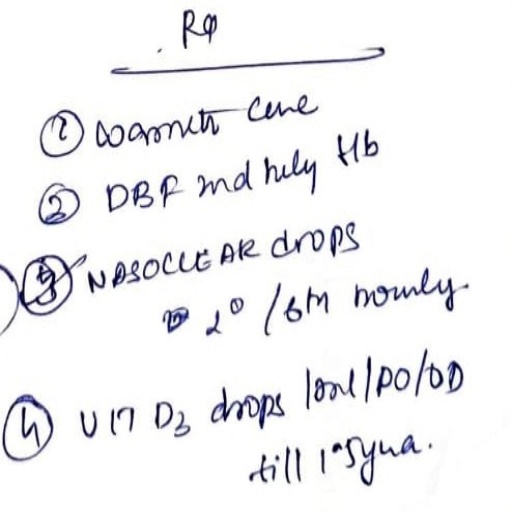 Rφ
① warmth care
② DBF 2nd hrly Hb
③ NASOCLEAR drops
2° / 6th hourly
④ VIT D3 drops 1ml/PO/OD
till 1 syna.